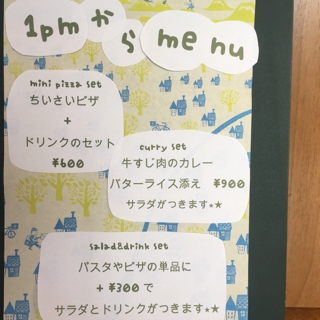 1pm から menu
mini pizza set
ちいさいピザ
+
ドリンクのセット
¥600
curry set
牛すじ肉のカレー
バターライス添え ¥900
サラダがつきます★★
salad&drink set
パスタやピザの単品に
+ ¥300で
サラダとドリンクがつきます★★